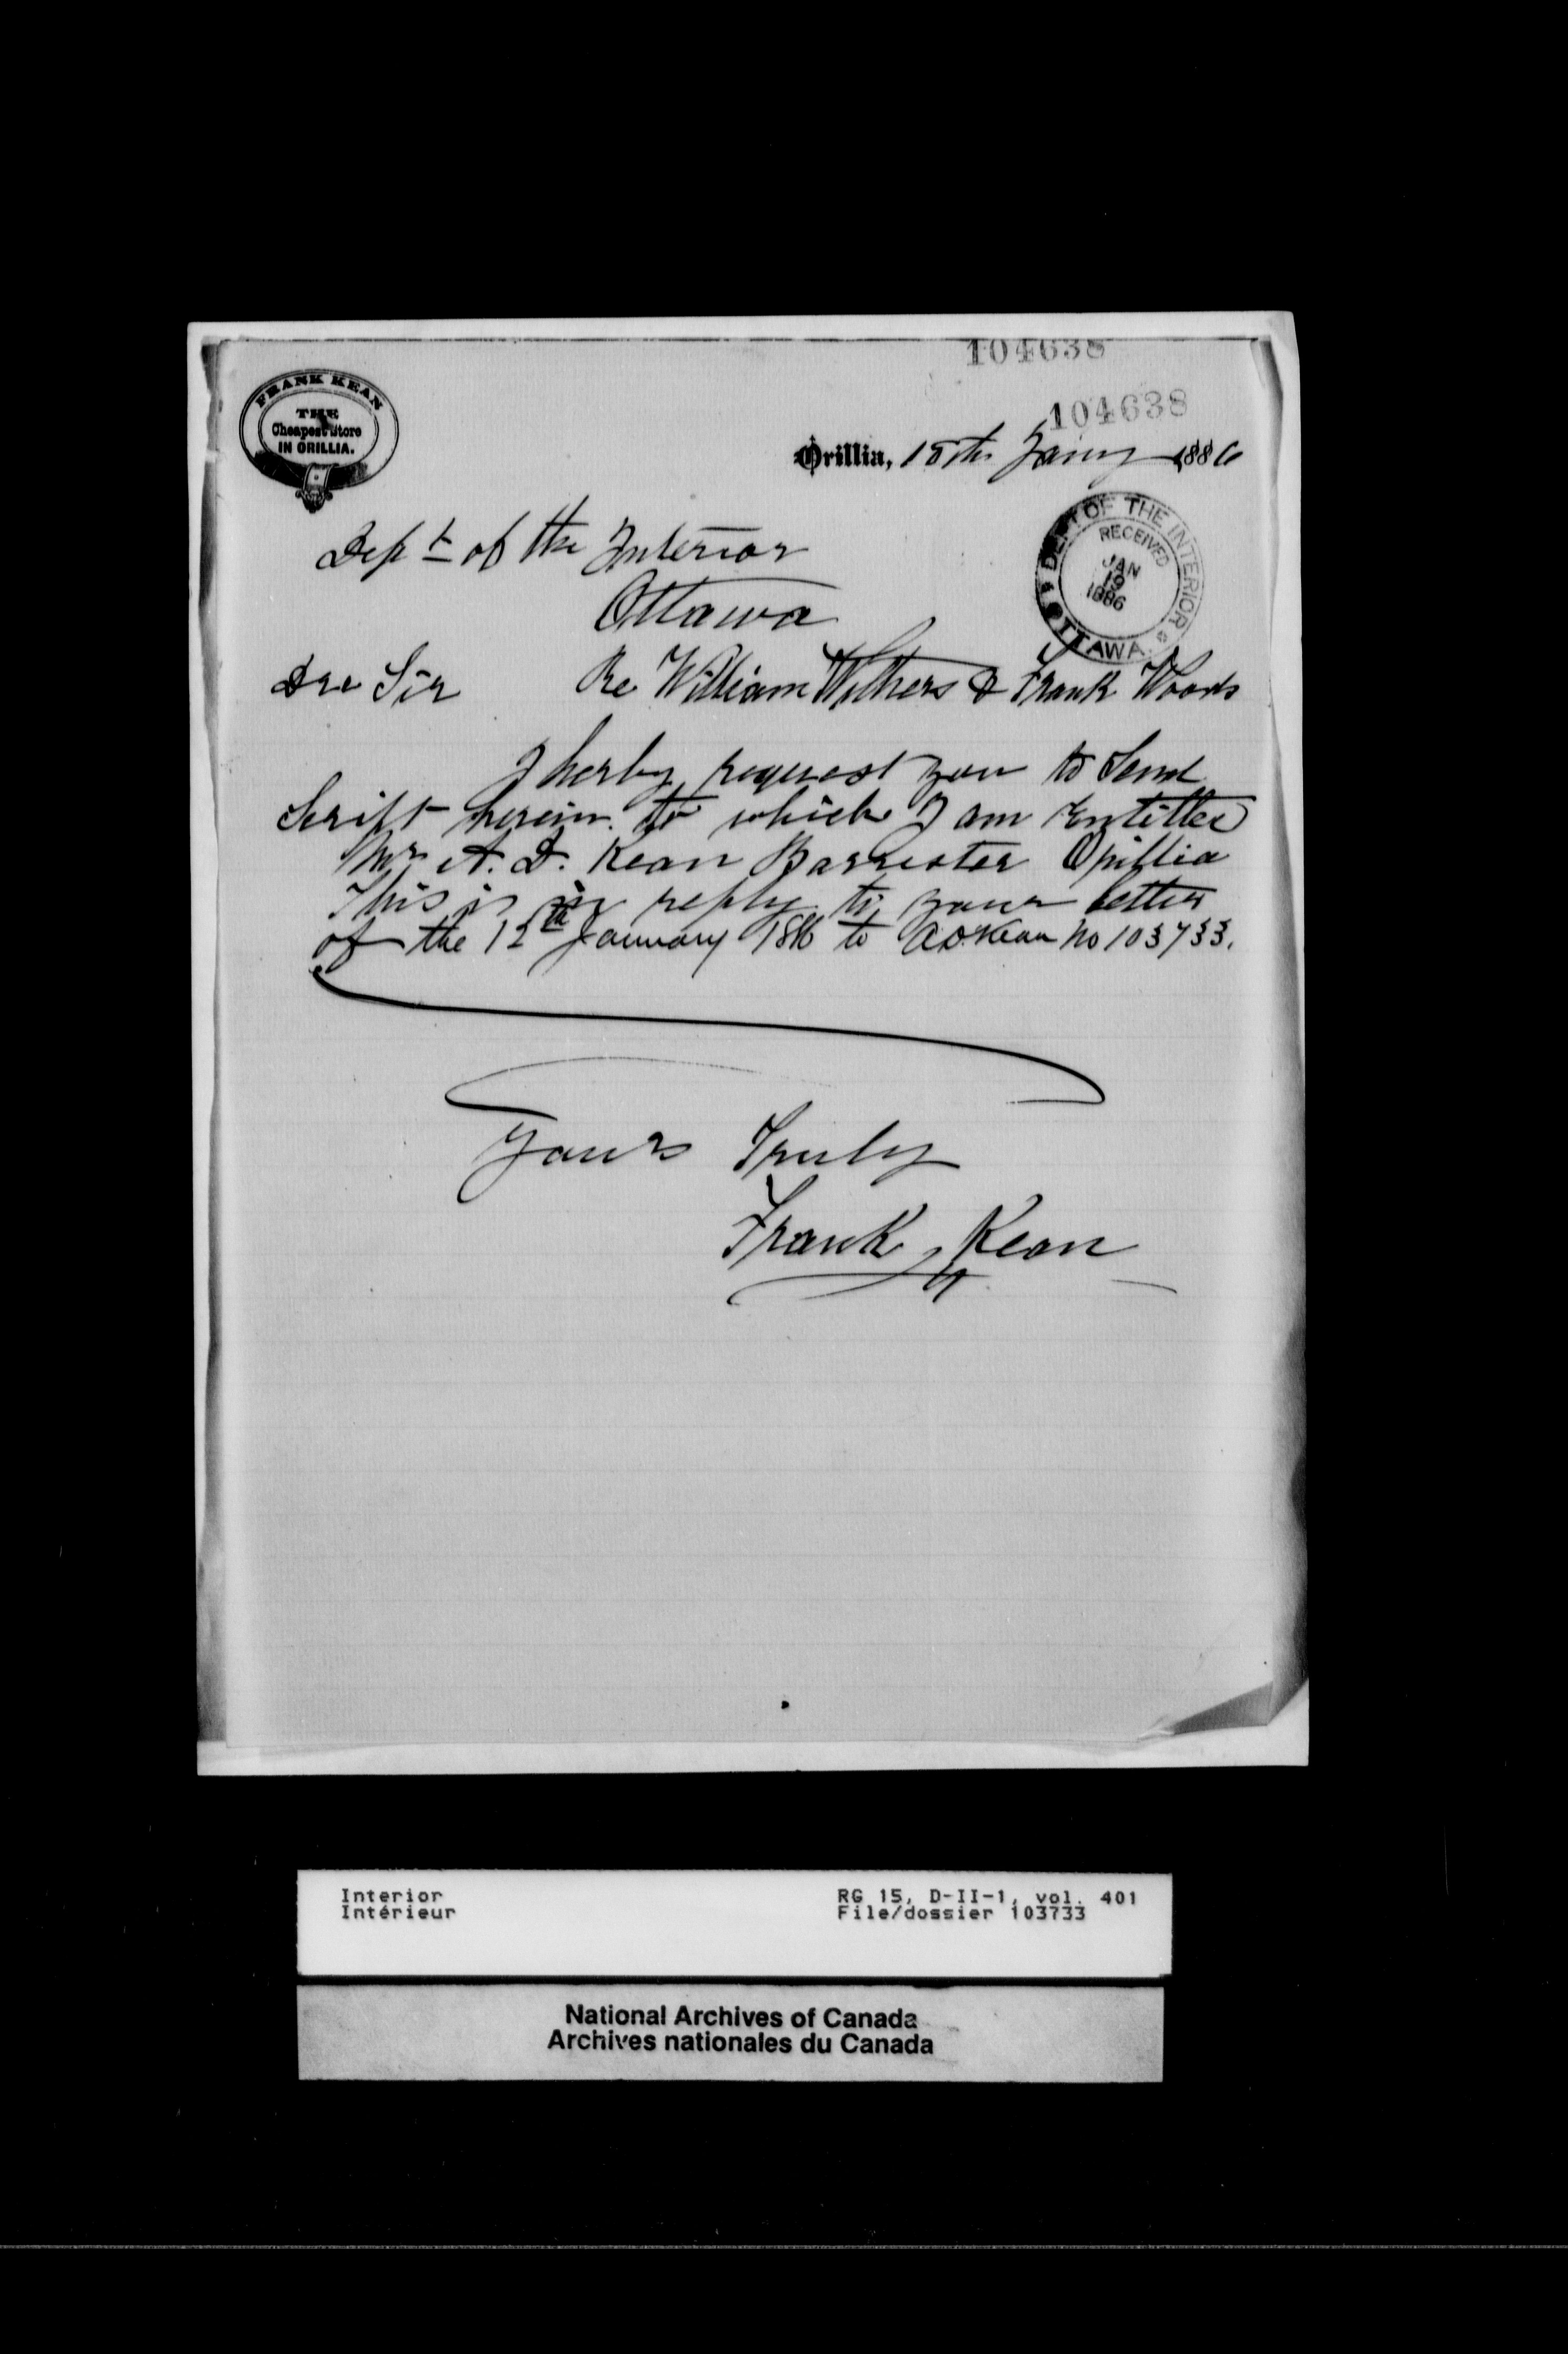 104638
104638
FRANK KEAN
THE
Cheapest Store
IN ORILLIA.
Orillia, 15th Jany 1886
DEPT OF THE INTERIOR
RECEIVED
JAN
19
1886
OTTAWA
Dept of the Interior
Ottawa
Dre Sir Re William Withers & Frank Woods
I herby request you to Send
Scrift herein to which I am Entitled
Mr A. D. Kean Barrister Orillia
This is in reply to your letter
of the 12th January 1886 to A D Kean No 103733.
Yours Truly
Frank Kean
Interior
Intérieur
RG 15, D-II-1, vol. 401
File/dossier 103733
National Archives of Canada
Archives nationales du Canada